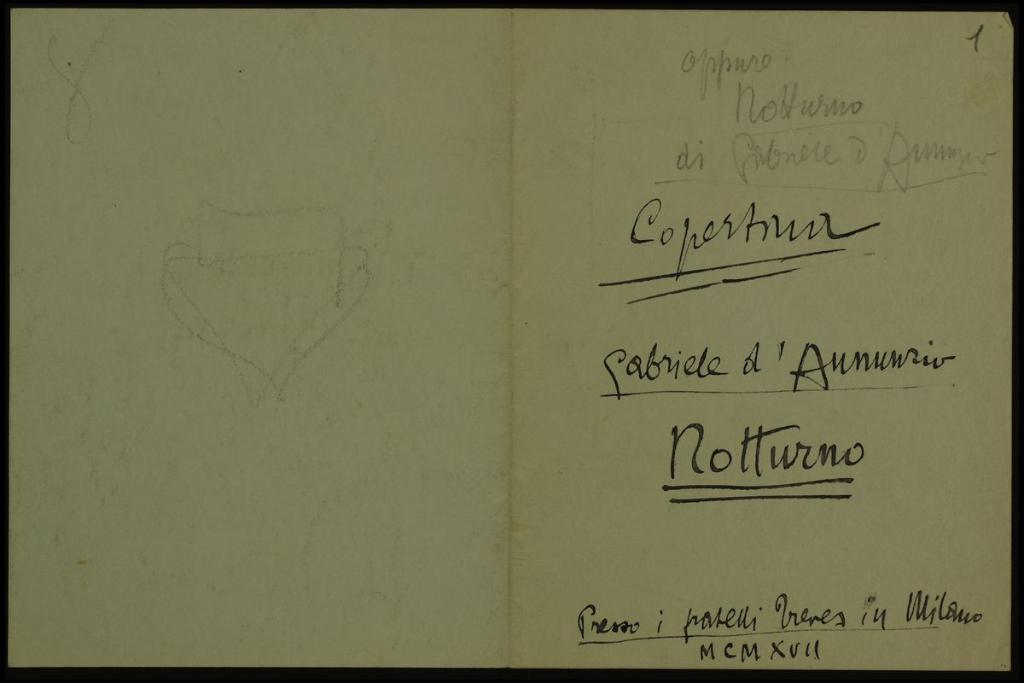 1
oppure
Notturno
di Gabriele d'Annunzio
Copertina
Gabriele d'Annunzio
Notturno
Presso i fratelli Treves in Milano
MCMXVII